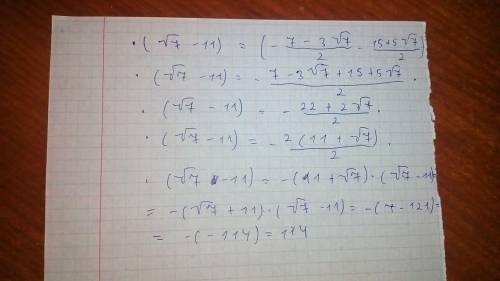 · (√7 - 11) = (- (7 - 3√7)/2 - (15+5√7)/2)
· (√7 - 11) = - (7 - 3√7 + 15 + 5√7)/2 ·
· (√7 - 11) = - (22 + 2√7)/2 ·
· (√7 - 11) = - 2(11 + √7)/2 ·
· (√7 - 11) = -(11 + √7) · (√7 - 11) =
= -(√7 + 11) · (√7 - 11) = -(7 - 121) =
= -(-114) = 114